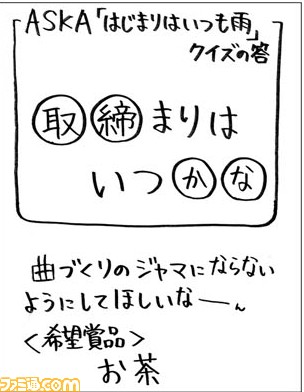 ASKA「はじまりはいつも雨」
クイズの答
取締まりは
いつかな
曲づくりのジャマにならない
ようにしてほしいなーん
<希望賞品>
お茶
ファミ通.com